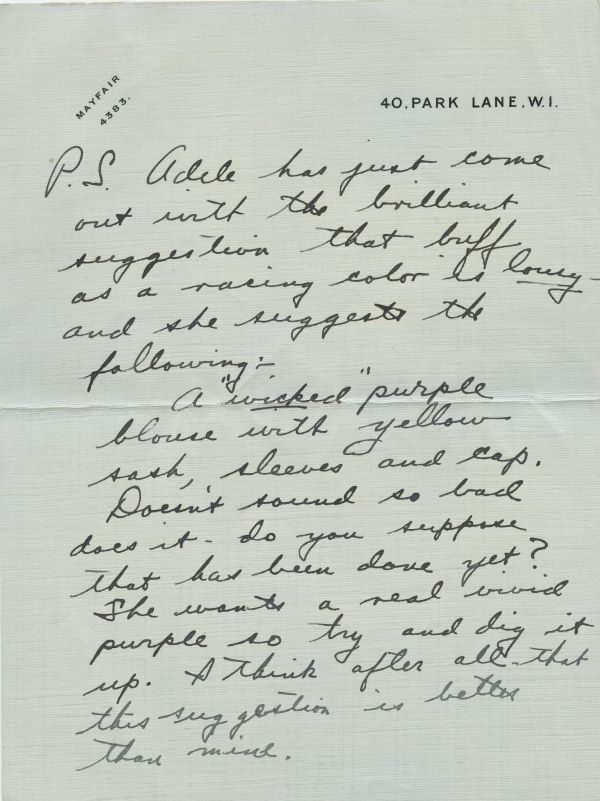 MAYFAIR
4383.
40, PARK LANE, W.1.
P.S. Adele has just come
out with the brilliant
suggestion that buff
as a racing color is lousy -
and she suggests the
following:-
A "wicked" purple
blouse with yellow
sash, sleeves and cap.
Doesn't sound so bad
does it - do you suppose
that has been done yet?
She wants a real vivid
purple so try and dig it
up. I think after all that
this suggestion is better
than mine.